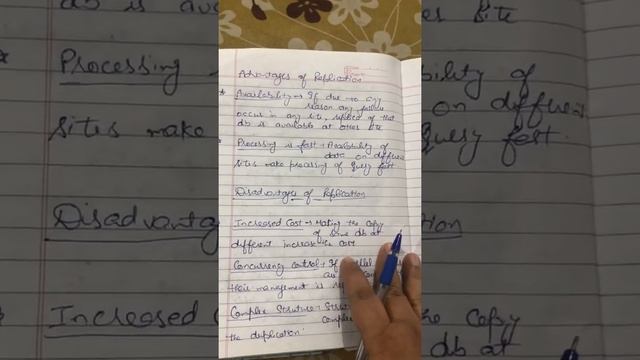 Advantages of Replication
Availability → If due to any
reason any failure
occur in any site, replica of that
db is available at other site
Processing is fast → Availability of
data on different
sites make processing of query fast
Disadvantages of Replication
Increased Cost → Making the copy
of same db at
different increase the cost
Concurrency control → If
their management is
Complex Struture →
complex
the duplication.